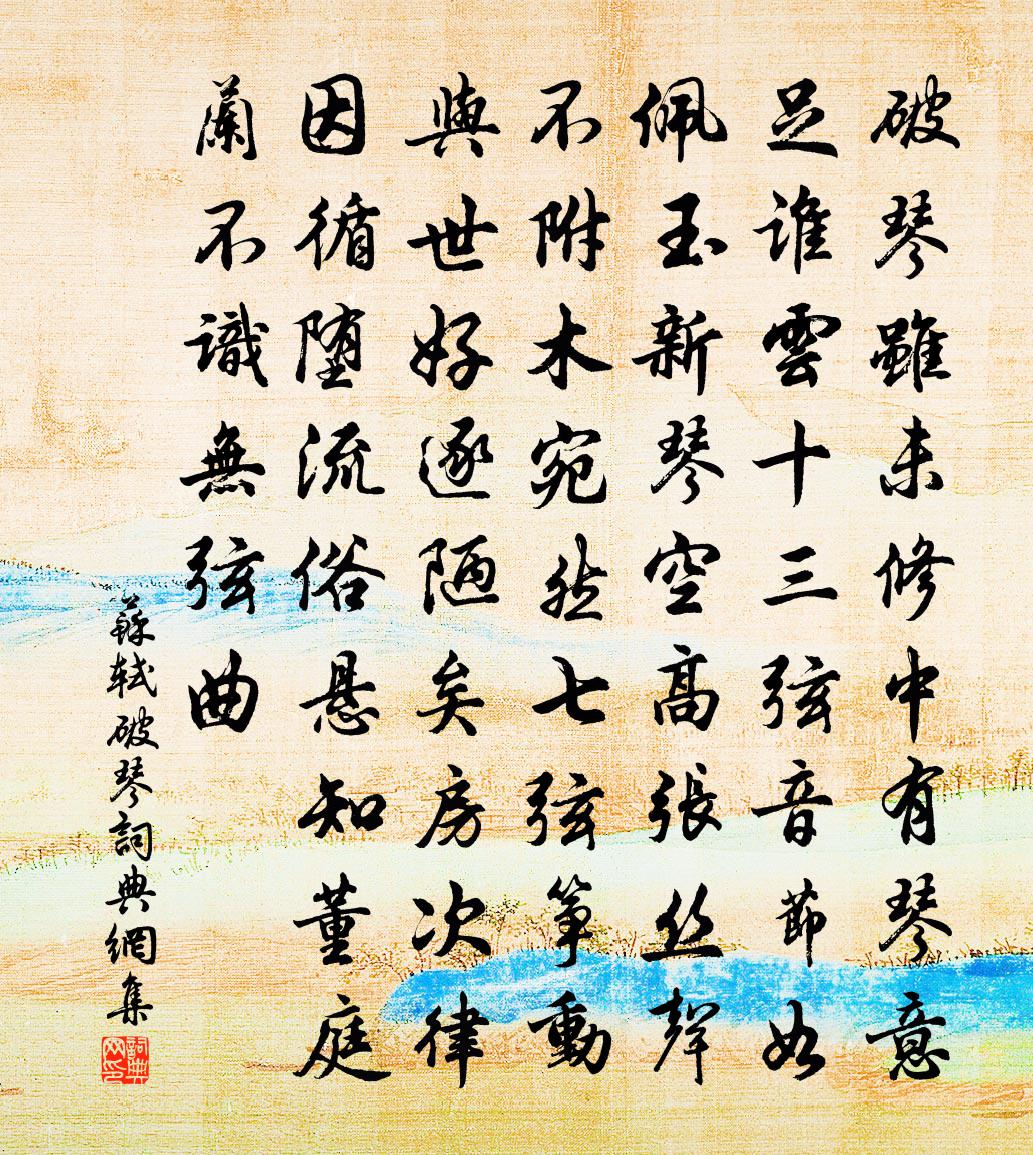 破琴雖未修中有琴意
足誰雲十三弦音節如
佩玉新琴空高張丝聲
不附木宛然七弦箏動
與世好逐陋矣房次律
因循堕流俗悬知董庭
蘭不識無弦曲
蘇軾破琴詞典網集
詞典网印